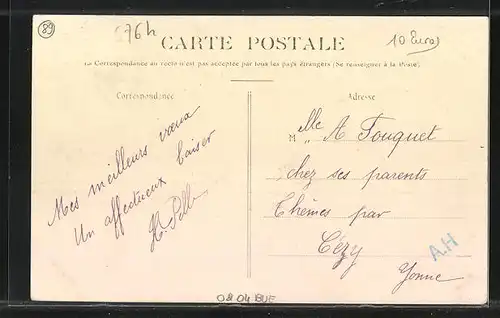 89
76h
10 Euros
CARTE POSTALE
La Correspondance au recto n'est pas acceptée par tous les pays étrangers (Se renseigner à la Poste)
Correspondance
Adresse
Mes meilleurs vœux
Un affectueux baiser
Mlle A Fouquet
chez ses parents
Thêmes par
Cézy
Yonne
A.H
08 04 BUE